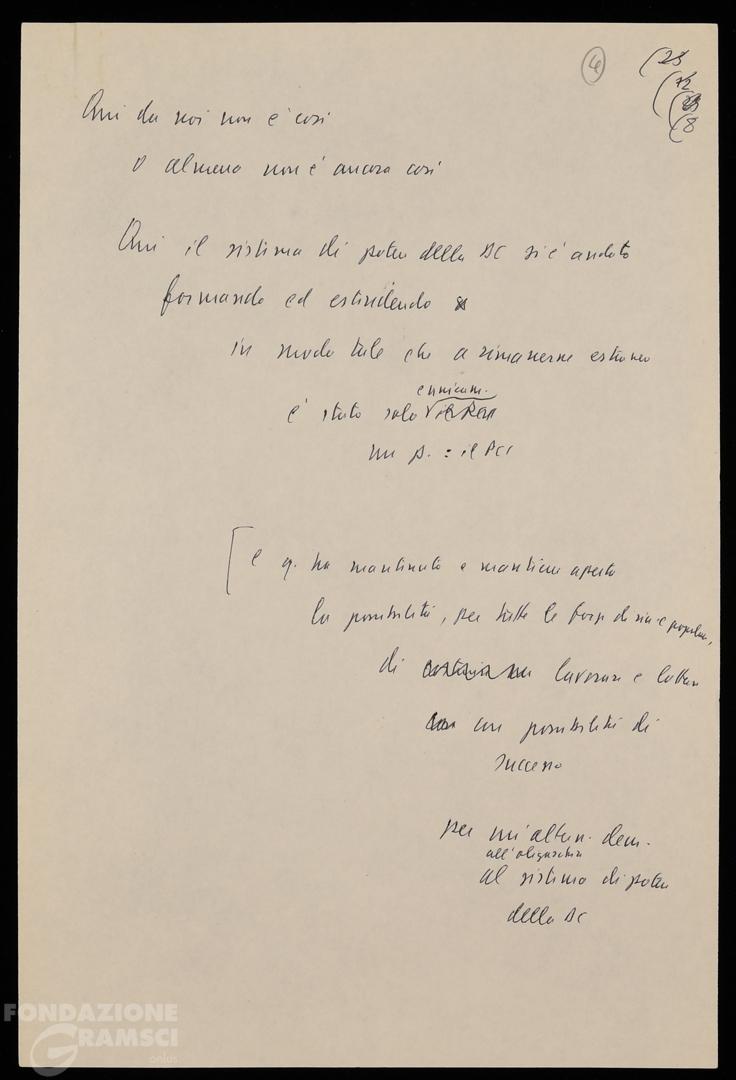 4
(25
(8
Qui da noi non è così
O almeno non è ancora così
Qui il sistema di potere della DC si è andato
formando ed estendendo
in modo tale che a rimanerne estraneo
è stato solo
un p. : il PCI
e q. ha mantenuto e mantiene aperta
la possibilità, per tutte le forze di sin e popolari,
di lavorare e lottare
con possibilità di
successo
per un'altern. dem.
all'oligarchia
al sistema di potere
della DC
FONDAZIONE
GRAMSCI
onlus